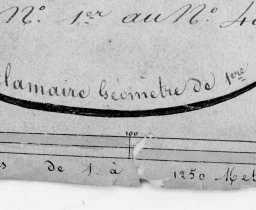 N.º 1.er au N.º 4
lamaire Géomètre de 1ère
100
de 1 à 1250 Met